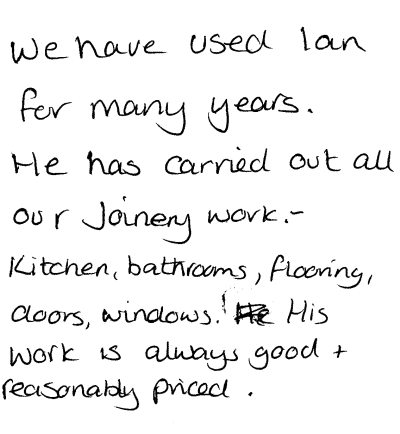 We have used Ian
for many years.
He has carried out all
our Joinery work.-
Kitchen, bathrooms, flooring,
doors, windows. He His
work is always good +
reasonably priced.